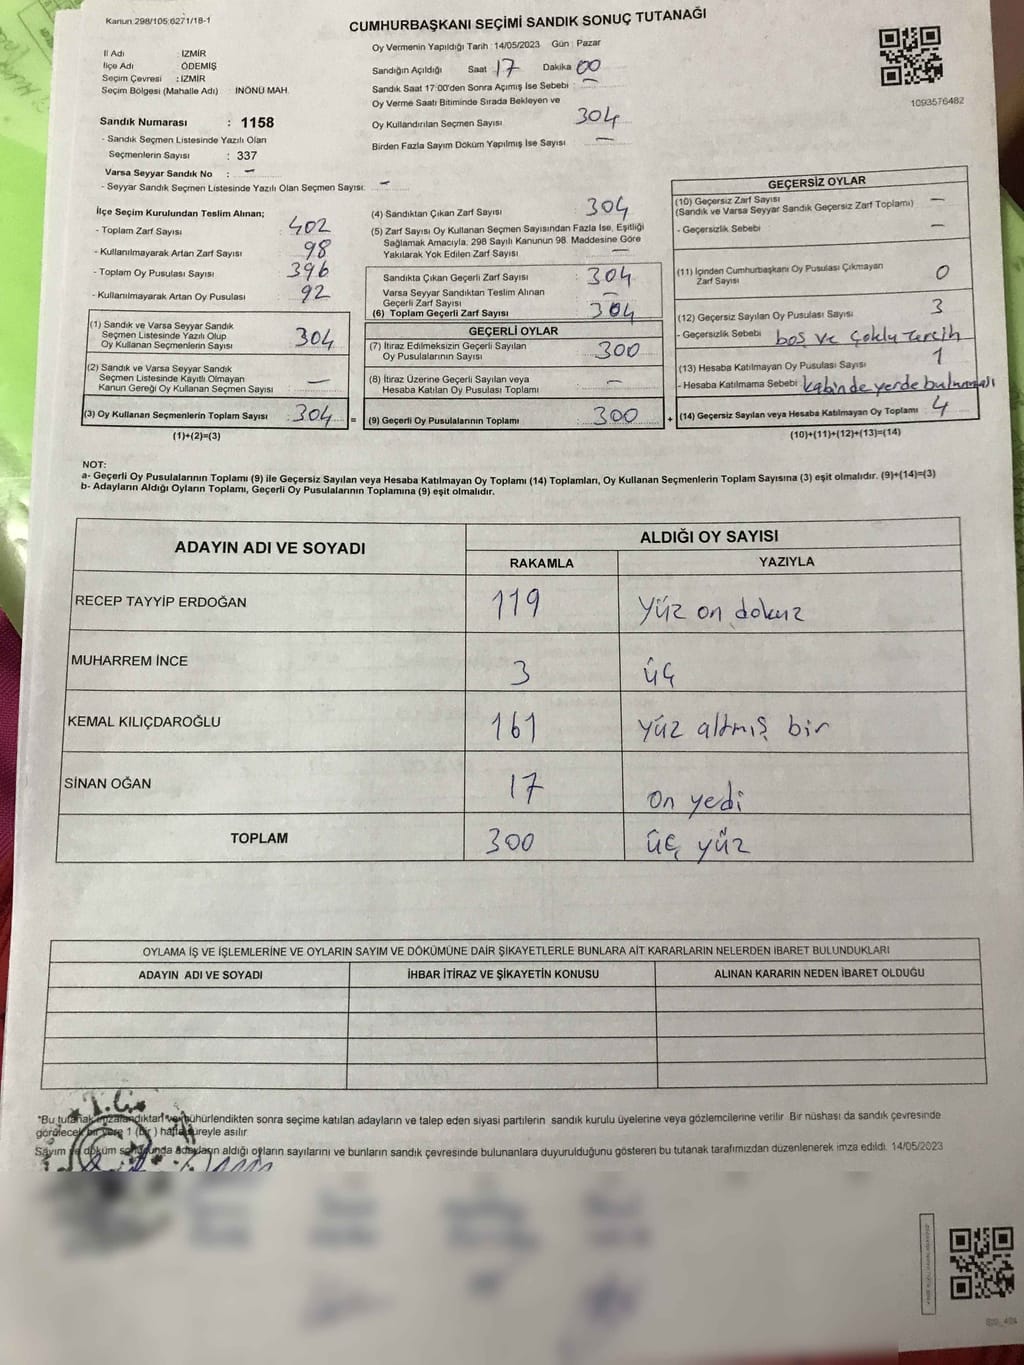 Kanun 298/105;6271/18-1
CUMHURBAŞKANI SEÇİMİ SANDIK SONUÇ TUTANAĞI
İl Adı : İZMİR
İlçe Adı : ÖDEMİŞ
Seçim Çevresi : İZMİR
Seçim Bölgesi (Mahalle Adı) : İNÖNÜ MAH.
Sandık Numarası : 1158
- Sandık Seçmen Listesinde Yazılı Olan
Seçmenlerin Sayısı : 337
Varsa Seyyar Sandık No : —
- Seyyar Sandık Seçmen Listesinde Yazılı Olan Seçmen Sayısı: —
Oy Vermenin Yapıldığı Tarih : 14/05/2023 Gün : Pazar
Sandığın Açıldığı Saat 17 Dakika 00
Sandık Saat 17:00'den Sonra Açımış İse Sebebi : —
Oy Verme Saati Bitiminde Sırada Bekleyen ve
Oy Kullandırılan Seçmen Sayısı 304
Birden Fazla Sayım Döküm Yapılmış İse Sayısı —
1093576482
İlçe Seçim Kurulundan Teslim Alınan;
- Toplam Zarf Sayısı : 402
- Kullanılmayarak Artan Zarf Sayısı : 98
- Toplam Oy Pusulası Sayısı : 396
- Kullanılmayarak Artan Oy Pusulası : 92
(1) Sandık ve Varsa Seyyar Sandık
Seçmen Listesinde Yazılı Olup
Oy Kullanan Seçmenlerin Sayısı : 304
(2) Sandık ve Varsa Seyyar Sandık
Seçmen Listesinde Kayıtlı Olmayan
Kanun Gereği Oy Kullanan Seçmen Sayısı : —
(3) Oy Kullanan Seçmenlerin Toplam Sayısı : 304 =
(1)+(2)=(3)
(4) Sandıktan Çıkan Zarf Sayısı : 304
(5) Zarf Sayısı Oy Kullanan Seçmen Sayısından Fazla İse, Eşitliği
Sağlamak Amacıyla, 298 Sayılı Kanunun 98. Maddesine Göre
Yakılarak Yok Edilen Zarf Sayısı : —
Sandıkta Çıkan Geçerli Zarf Sayısı : 304
Varsa Seyyar Sandıktan Teslim Alınan
Geçerli Zarf Sayısı : —
(6) Toplam Geçerli Zarf Sayısı : 304
GEÇERLİ OYLAR
(7) İtiraz Edilmeksizin Geçerli Sayılan
Oy Pusulalarının Sayısı : 300
(8) İtiraz Üzerine Geçerli Sayılan veya
Hesaba Katılan Oy Pusulaları Toplamı : —
(9) Geçerli Oy Pusulalarının Toplamı : 300 +
GEÇERSİZ OYLAR
(10) Geçersiz Zarf Sayısı
(Sandık ve Varsa Seyyar Sandık Geçersiz Zarf Toplamı) : —
- Geçersizlik Sebebi : —
(11) İçinden Cumhurbaşkanı Oy Pusulası Çıkmayan
Zarf Sayısı : 0
(12) Geçersiz Sayılan Oy Pusulası Sayısı : 3
- Geçersizlik Sebebi : boş ve çoklu tercih
(13) Hesaba Katılmayan Oy Pusulası Sayısı : 1
- Hesaba Katılmama Sebebi : kabinde yerde bulunması
(14) Geçersiz Sayılan veya Hesaba Katılmayan Oy Toplamı : 4
(10)+(11)+(12)+(13)=(14)
NOT:
a- Geçerli Oy Pusulalarının Toplamı (9) ile Geçersiz Sayılan veya Hesaba Katılmayan Oy Toplamı (14) Toplamları, Oy Kullanan Seçmenlerin Toplam Sayısına (3) eşit olmalıdır. (9)+(14)=(3)
b- Adayların Aldığı Oyların Toplamı, Geçerli Oy Pusulalarının Toplamına (9) eşit olmalıdır.
ADAYIN ADI VE SOYADI ALDIĞI OY SAYISI
RAKAMLA YAZIYLA
RECEP TAYYİP ERDOĞAN 119 yüz on dokuz
MUHARREM İNCE 3 üç
KEMAL KILIÇDAROĞLU 161 yüz altmış bir
SİNAN OĞAN 17 on yedi
TOPLAM 300 üç yüz
OYLAMA İŞ VE İŞLEMLERİNE VE OYLARIN SAYIM VE DÖKÜMÜNE DAİR ŞİKAYETLERLE BUNLARA AİT KARARLARIN NELERDEN İBARET BULUNDUKLARI
ADAYIN ADI VE SOYADI İHBAR İTİRAZ VE ŞİKAYETİN KONUSU ALINAN KARARIN NEDEN İBARET OLDUĞU
T.C.
*Bu tutanak imzalandıktan ve mühürlendikten sonra seçime katılan adayların ve talep eden siyasi partilerin sandık kurulu üyelerine veya gözlemcilerine verilir. Bir nüshası da sandık çevresinde
görülecek bir yere 1 (bir) hafta süreyle asılır.
Sayım ve döküm sonucunda adayların aldığı oyların sayılarını ve bunların sandık çevresinde bulunanlara duyurulduğunu gösteren bu tutanak tarafımızdan düzenlenerek imza edildi. 14/05/2023